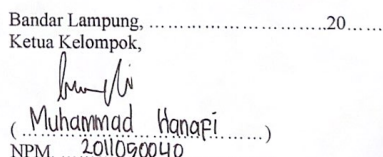 Bandar Lampung, ................................20......
Ketua Kelompok,
( Muhammad Hanafi ......)
NPM. 2011090040